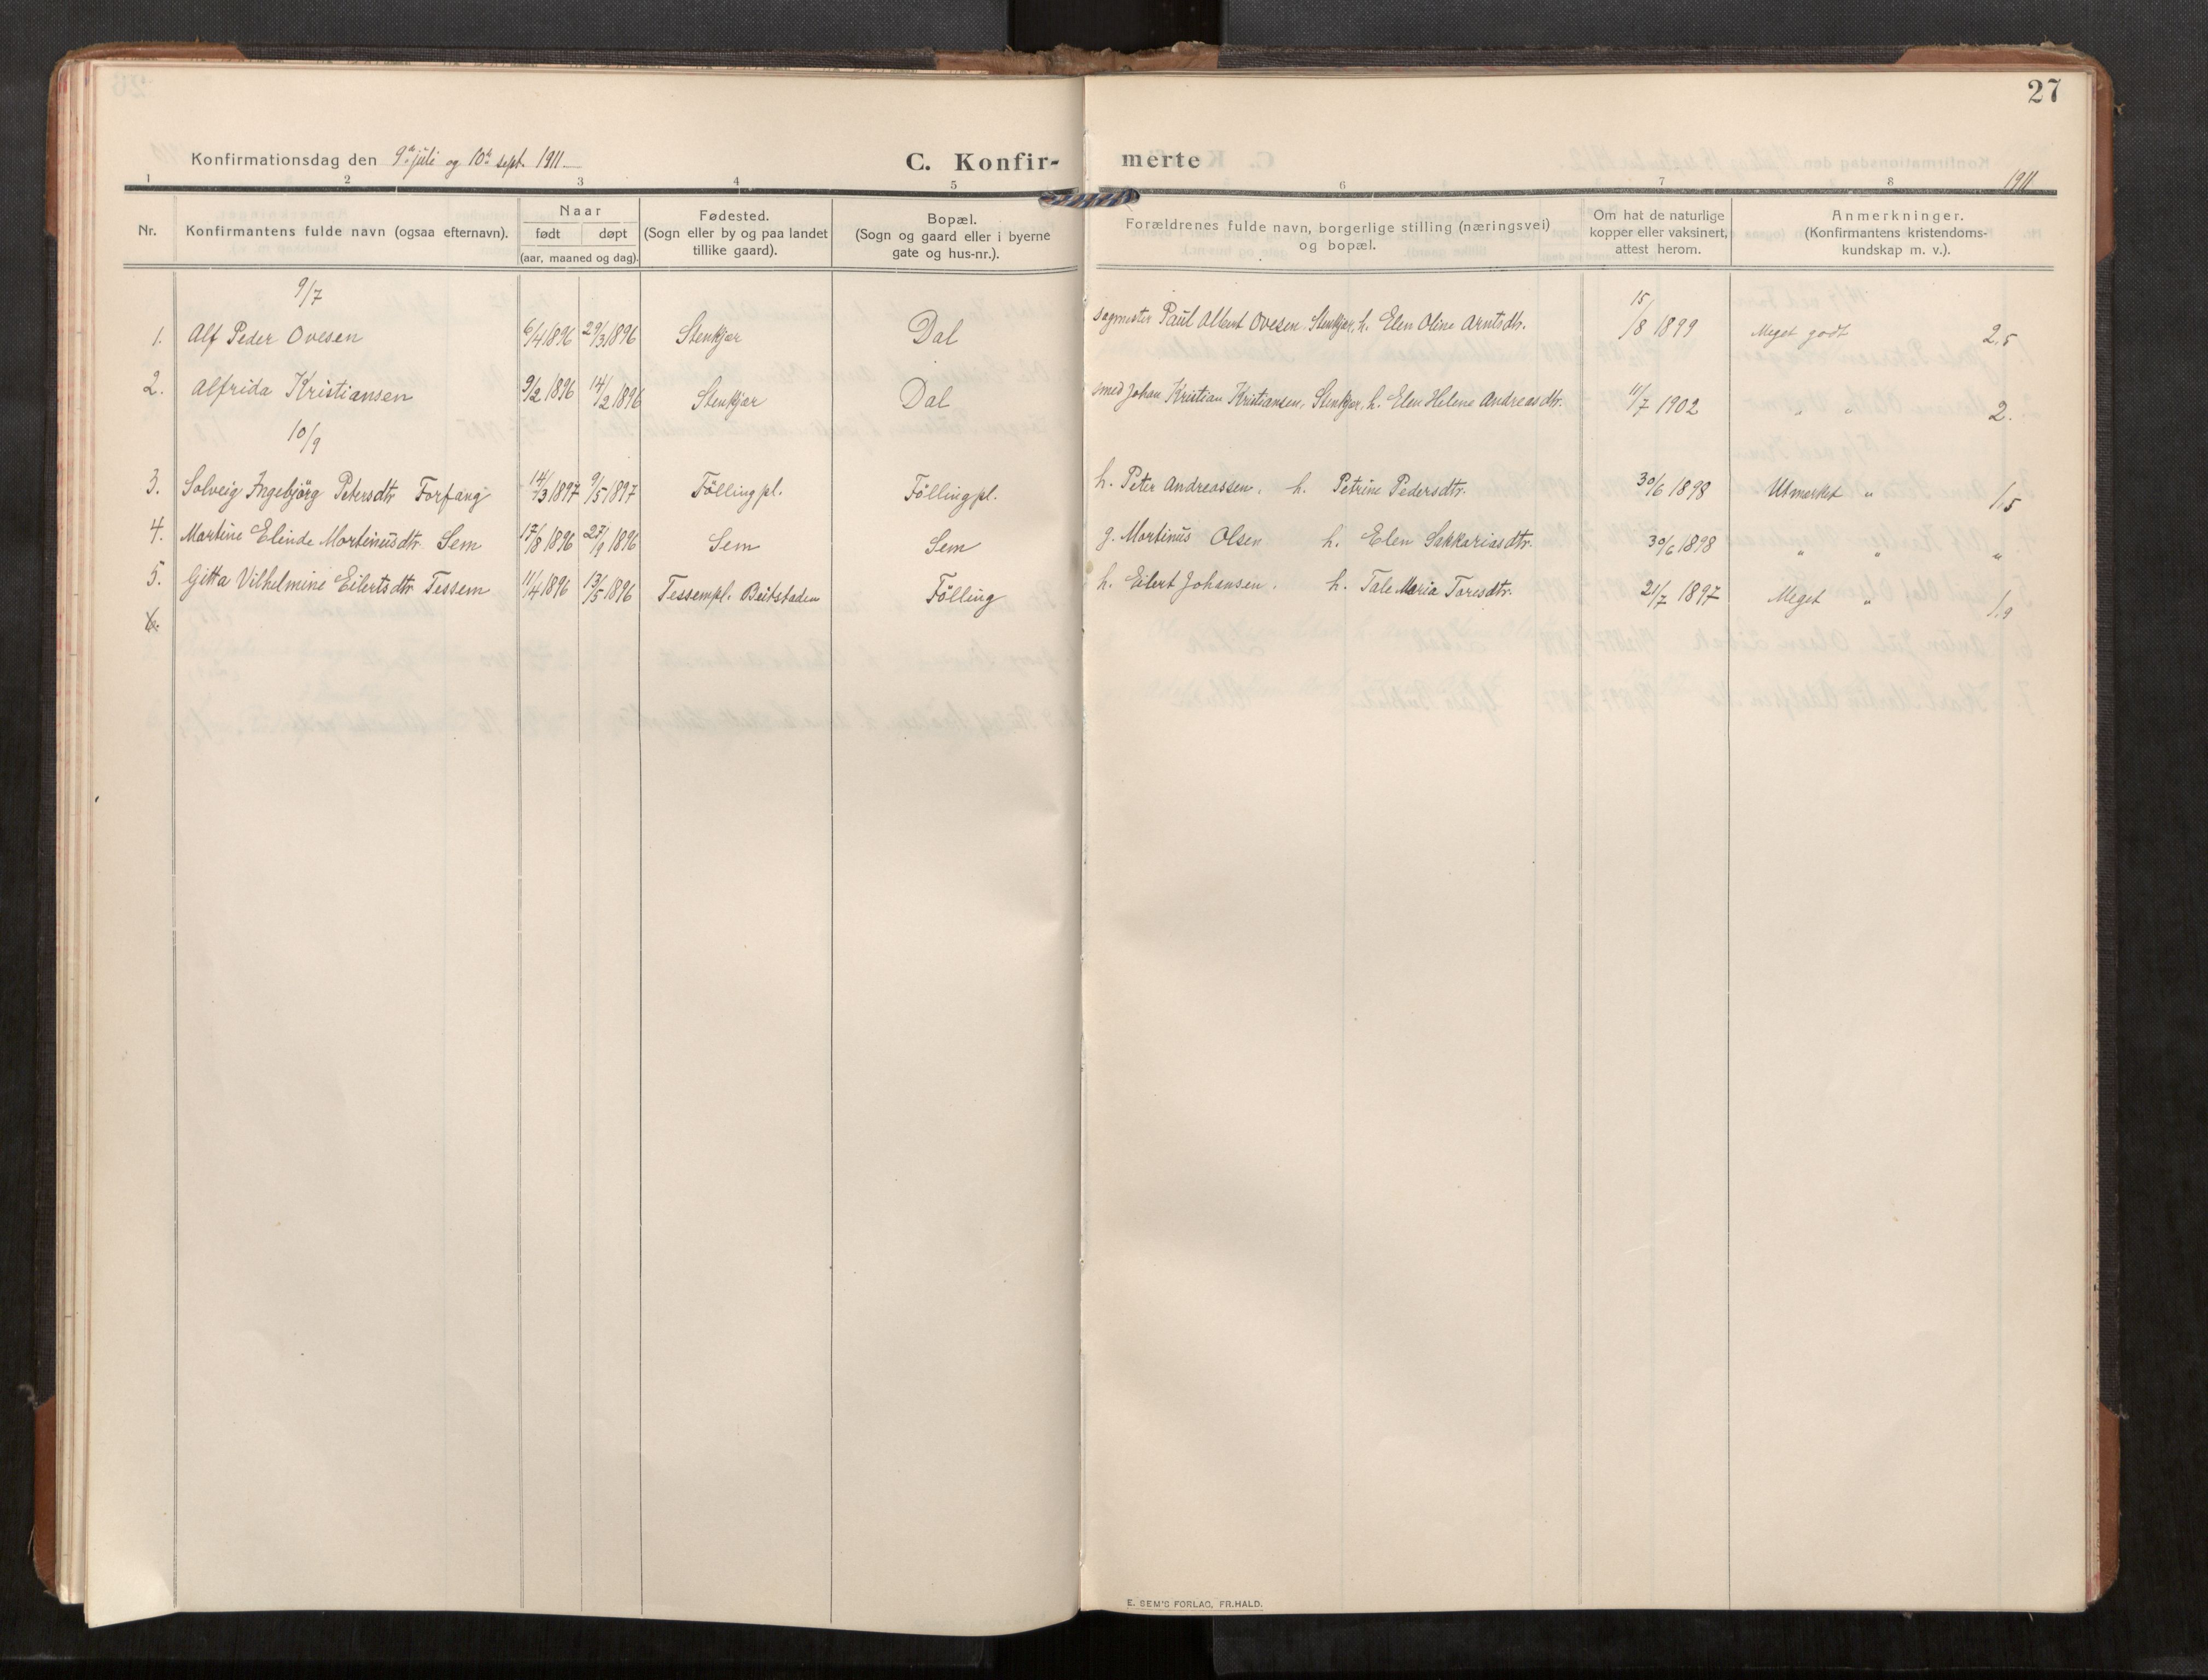 27
Konfirmationsdag den 9de juli og 10de sept. 1911.
C. Konfir- merte
1911
1 2 3 4 5 6 7 8
Nr.
Konfirmantens fulde navn (ogsaa efternavn).
Naar
født
døpt
(aar, maaned og dag).
Fødested.
(Sogn eller by og paa landet
tillike gaard).
Bopæl.
(Sogn og gaard eller i byerne
gate og hus-nr.).
Forældrenes fulde navn, borgerlige stilling (næringsvei)
og bopæl.
Om hat de naturlige
kopper eller vaksinert,
attest herom.
Anmerkninger.
(Konfirmantens kristendoms-
kundskap m. v.).
9/7
1. Alf Peder Ovesen 6/4 1896 29/3 1896 Stenkjær Dal sagmester Paul Albert Ovesen, Stenkjær, h. Elen Oline Arntsdtr. 15/8 1899 Meget godt 2,5
2. Alfrida Kristiansen 9/2 1896 14/2 1896 Stenkjær Dal smed Johan Kristian Kristiansen, Stenkjær, h. Elen Helene Andreasdtr. 11/7 1902 " " 2.
10/9
3. Solveig Ingebjörg Petersdtr Forfang 14/3 1897 9/5 1897 Föllingpl. Föllingpl. h. Peter Andreassen, h. Petrine Pedersdtr. 30/6 1898 Utmerket " 1,5
4. Martine Elinde Martinusdtr. Sem 17/8 1896 27/9 1896 Sem Sem g. Martinus Olsen h. Elen Sakkariasdtr. 30/6 1898 " " "
5. Gitta Vilhelmine Eilertsdtr Tessem 11/4 1896 13/5 1896 Tessempl. Beitstaden Fölling h. Eilert Johansen, h. Tale Maria Toresdtr. 21/7 1897 Meget " 1,9
6.
E. SEM'S FORLAG, FR.HALD.